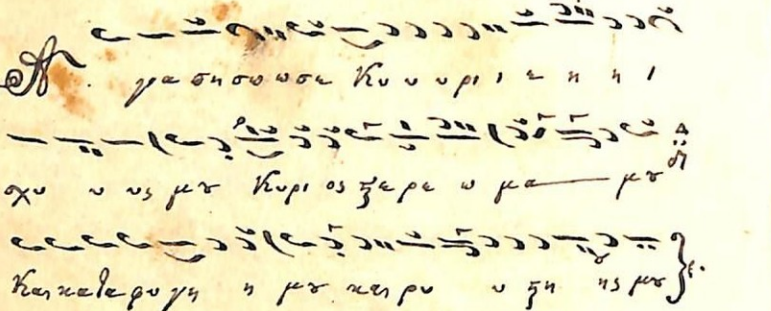 Αγαπησωωσε Κυυυριιεηηι
σχυυυςμȣ Κυριοςςερεωμα μȣ
Καικαταφυγηημȣ καιρυυςηηςμȣ